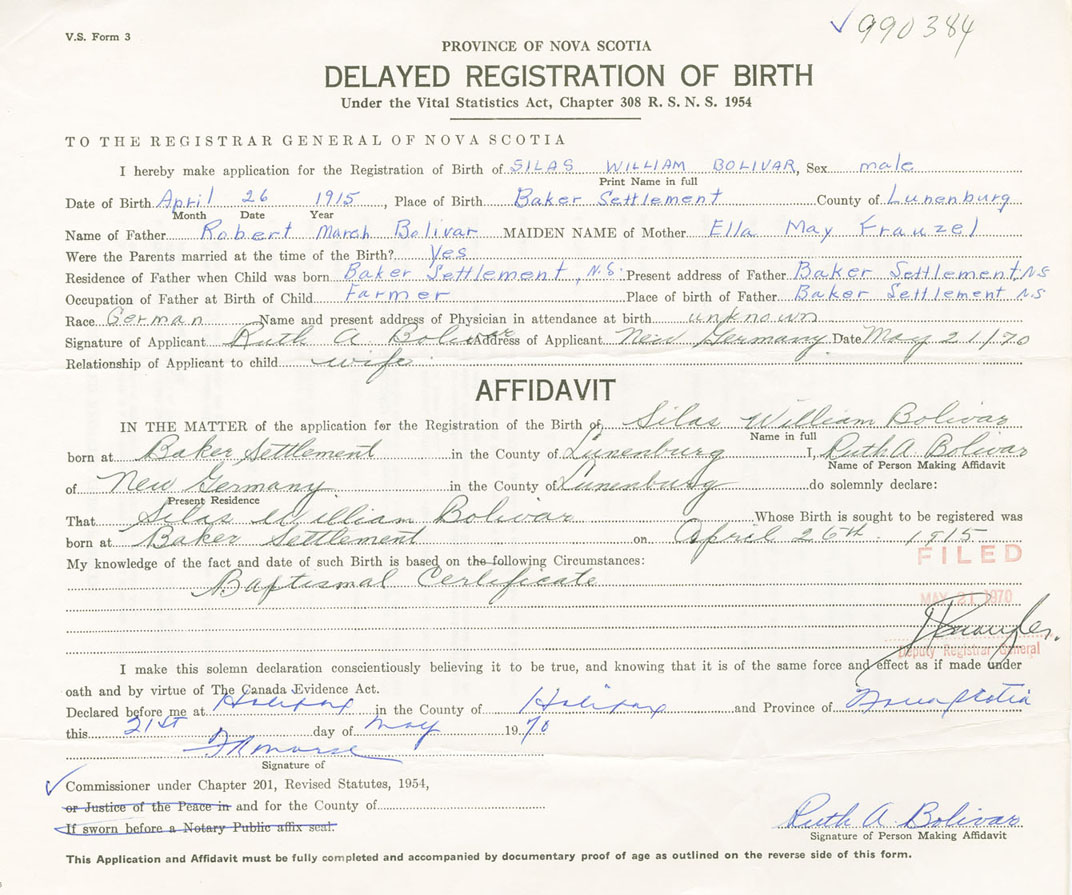 V.S. Form 3
990384
PROVINCE OF NOVA SCOTIA
DELAYED REGISTRATION OF BIRTH
Under the Vital Statistics Act, Chapter 308 R. S. N. S. 1954
TO THE REGISTRAR GENERAL OF NOVA SCOTIA
I hereby make application for the Registration of Birth of SILAS WILLIAM BOLIVAR, Sex male
Print Name in full
Date of Birth April 26 1915, Place of Birth Baker Settlement County of Lunenburg
Month Date Year
Name of Father Robert March Bolivar MAIDEN NAME of Mother Ella May Frauzel
Were the Parents married at the time of the Birth? Yes
Residence of Father when Child was born Baker Settlement, N.S. Present address of Father Baker Settlement NS
Occupation of Father at Birth of Child Farmer Place of birth of Father Baker Settlement N.S
Race German Name and present address of Physician in attendance at birth unknown
Signature of Applicant Ruth A Bolivar Address of Applicant New Germany Date May 21/70
Relationship of Applicant to child wife
AFFIDAVIT
IN THE MATTER of the application for the Registration of the Birth of Silas William Bolivar
Name in full
born at Baker Settlement in the County of Lunenburg I, Ruth A Bolivar
Name of Person Making Affidavit
of New Germany in the County of Lunenburg do solemnly declare:
Present Residence
That Silas William Bolivar Whose Birth is sought to be registered was
born at Baker Settlement on April 26th 1915
FILED
My knowledge of the fact and date of such Birth is based on the following Circumstances:
Baptismal Certificate
MAY 21 1970
Deputy Registrar General
I make this solemn declaration conscientiously believing it to be true, and knowing that it is of the same force and effect as if made under
oath and by virtue of The Canada Evidence Act.
Declared before me at Halifax in the County of Halifax and Province of Nova Scotia
this 21st day of May 1970
Signature of
Commissioner under Chapter 201, Revised Statutes, 1954,
or Justice of the Peace in and for the County of
If sworn before a Notary Public affix seal.
Ruth A. Bolivar
Signature of Person Making Affidavit
This Application and Affidavit must be fully completed and accompanied by documentary proof of age as outlined on the reverse side of this form.